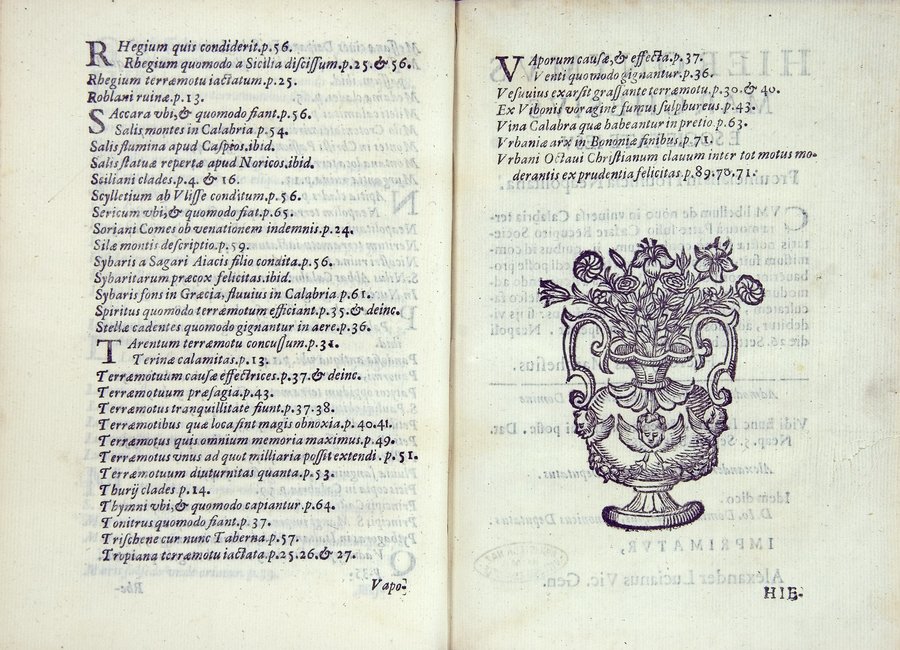 RHegium quis condiderit.p.56.
Rhegium quomodo a Sicilia discissum.p.25.& 56.
Rhegium terræmotu iactatum.p.25.
Roblani ruinæ.p.13.
SAccara vbi,& quomodo fiant.p.56.
Salis montes in Calabria p.54.
Salis flumina apud Caspios.ibid.
Salis statuæ repertæ apud Noricos.ibid.
Sciliani clades.p.4. & 16.
Scylletium ab Vlisse conditum.p.56.
Sericum vbi,& quomodo fiat.p.65.
Soriani Comes ob venationem indemnis.p.24.
Silæ montis descriptio.p.59.
Sybaris a Sagari Aiacis filio condita.p.56.
Sybaritarum præcox felicitas.ibid.
Sybaris fons in Græcia, fluuius in Calabria p.61.
Spiritus quomodo terræmotum efficiant.p.35.& deinc.
Stellæ cadentes quomodo gignantur in aere.p.36.
TArentum terræmotu concussum.p.31.
Terinæ calamitas.p.13.
Terræmotuum causæ effectrices.p.37.& deinc.
Terræmotuum præsagia.p.43.
Terræmotus tranquillitate fiunt.p.37.38.
Terræmotibus quæ loca sint magis obnoxia.p.40.41.
Terræmotus quis omnium memoria maximus.p.49.
Terræmotus vnus ad quot milliaria possit extendi.p.51.
Terræmotuum diuturnitas quanta.p.53.
Thurij clades p.14.
Thymni vbi,& quomodo capiantur.p.64.
Tonitrus quomodo fiant.p.37.
Trischene cur nunc Taberna.p.57.
Tropiana terræmotu iactata.p.25.26.& 27.
Vapo-
VAporum causæ,& effecta.p.37.
Venti quomodo gignantur.p.36.
Vesuuius exarsit grassante terræmotu.p.30.& 40.
Ex Vibonis voragine fumus sulphureus.p.43.
Vina Calabra quæ habeantur in pretio.p.63.
Vrbaniæ arx in Bononiæ finibus.p.71.
Vrbani Octaui Christianum clauum inter tot motus mo-
derantis ex prudentia felicitas.p.89.70.71.
HIE-